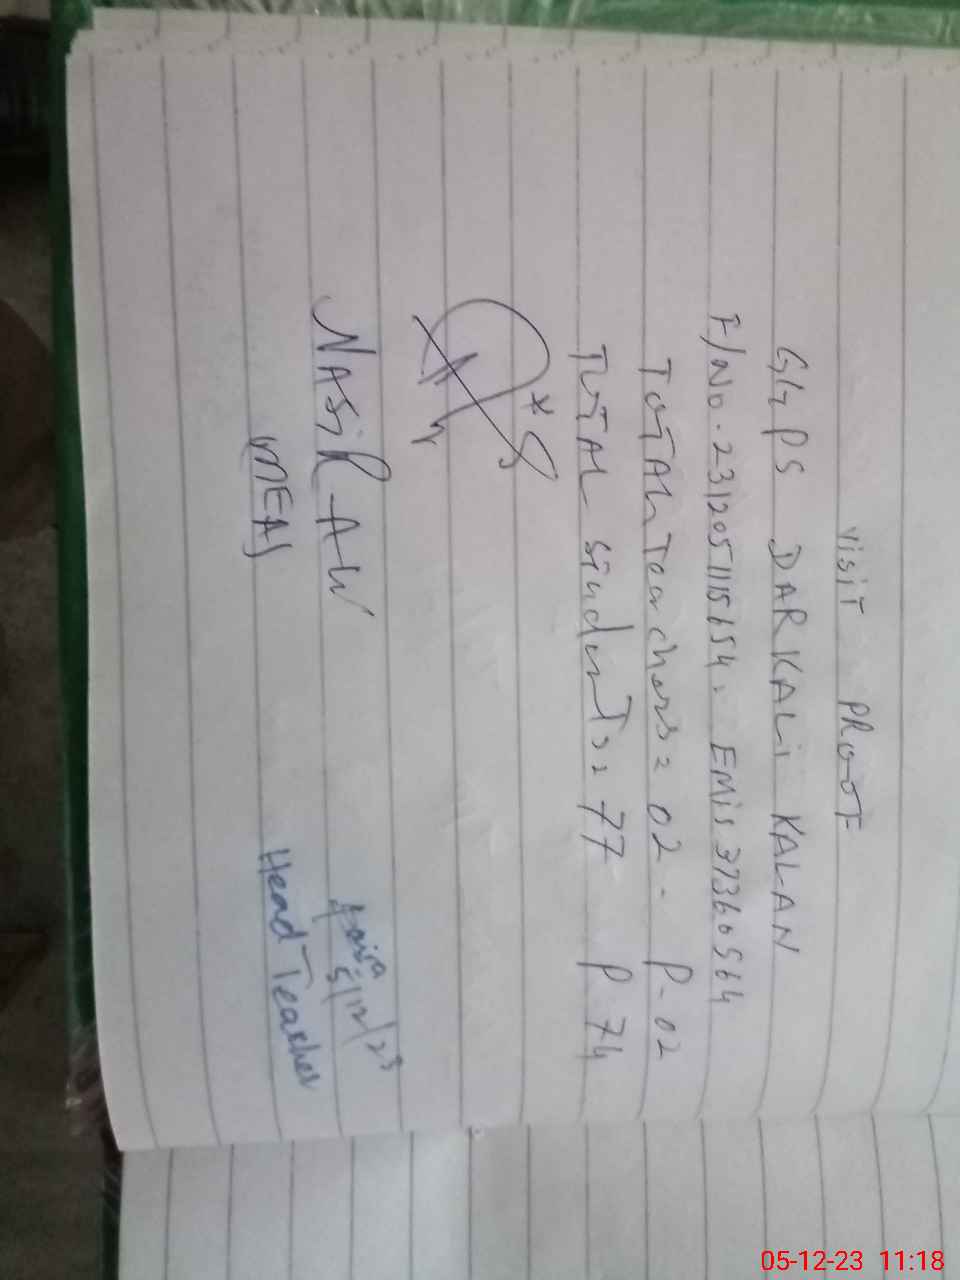 Visit PROOF
GG PS DARKALi KALAN
F/No. 231205115654. EMis 37360564
TOTAL Teachers = 02. P-02
TOTAL Students = 77 P 74
NASiR ALi
(MEA)
5/12/23
Head Teacher
05-12-23 11:18